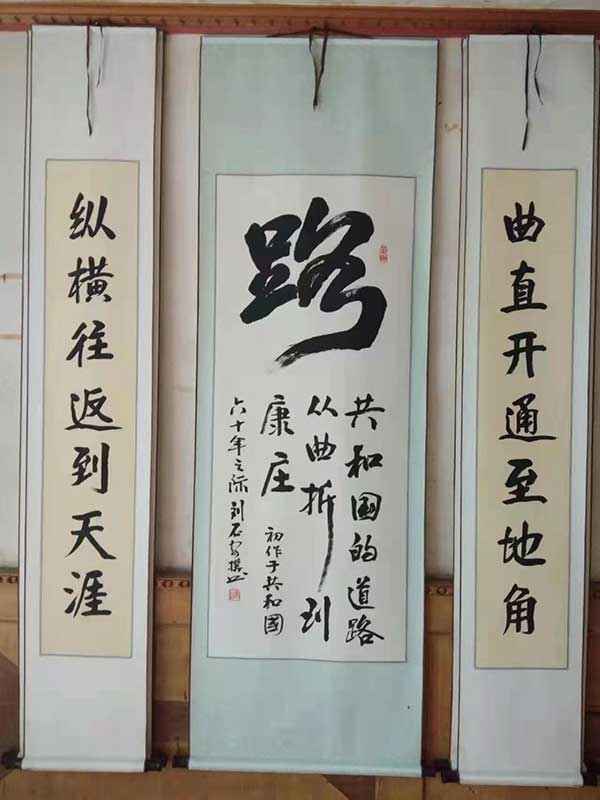 曲直开通至地角
路
共和国的道路
从曲折到
康庄
初作于共和國
六十年之际
纵横往返到天涯